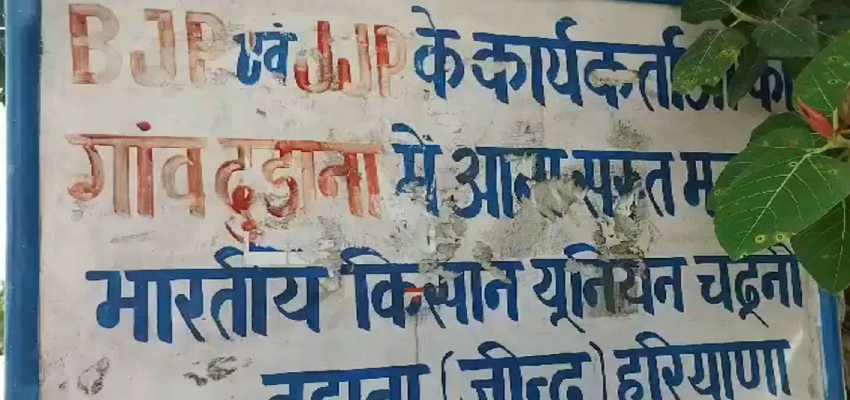 BJP एवं JJP के कार्यकर्ताओं का
गांव दुडाना में आना सख्त म
भारतीय किसान यूनियन चढूनी
(जीन्द) हरियाणा